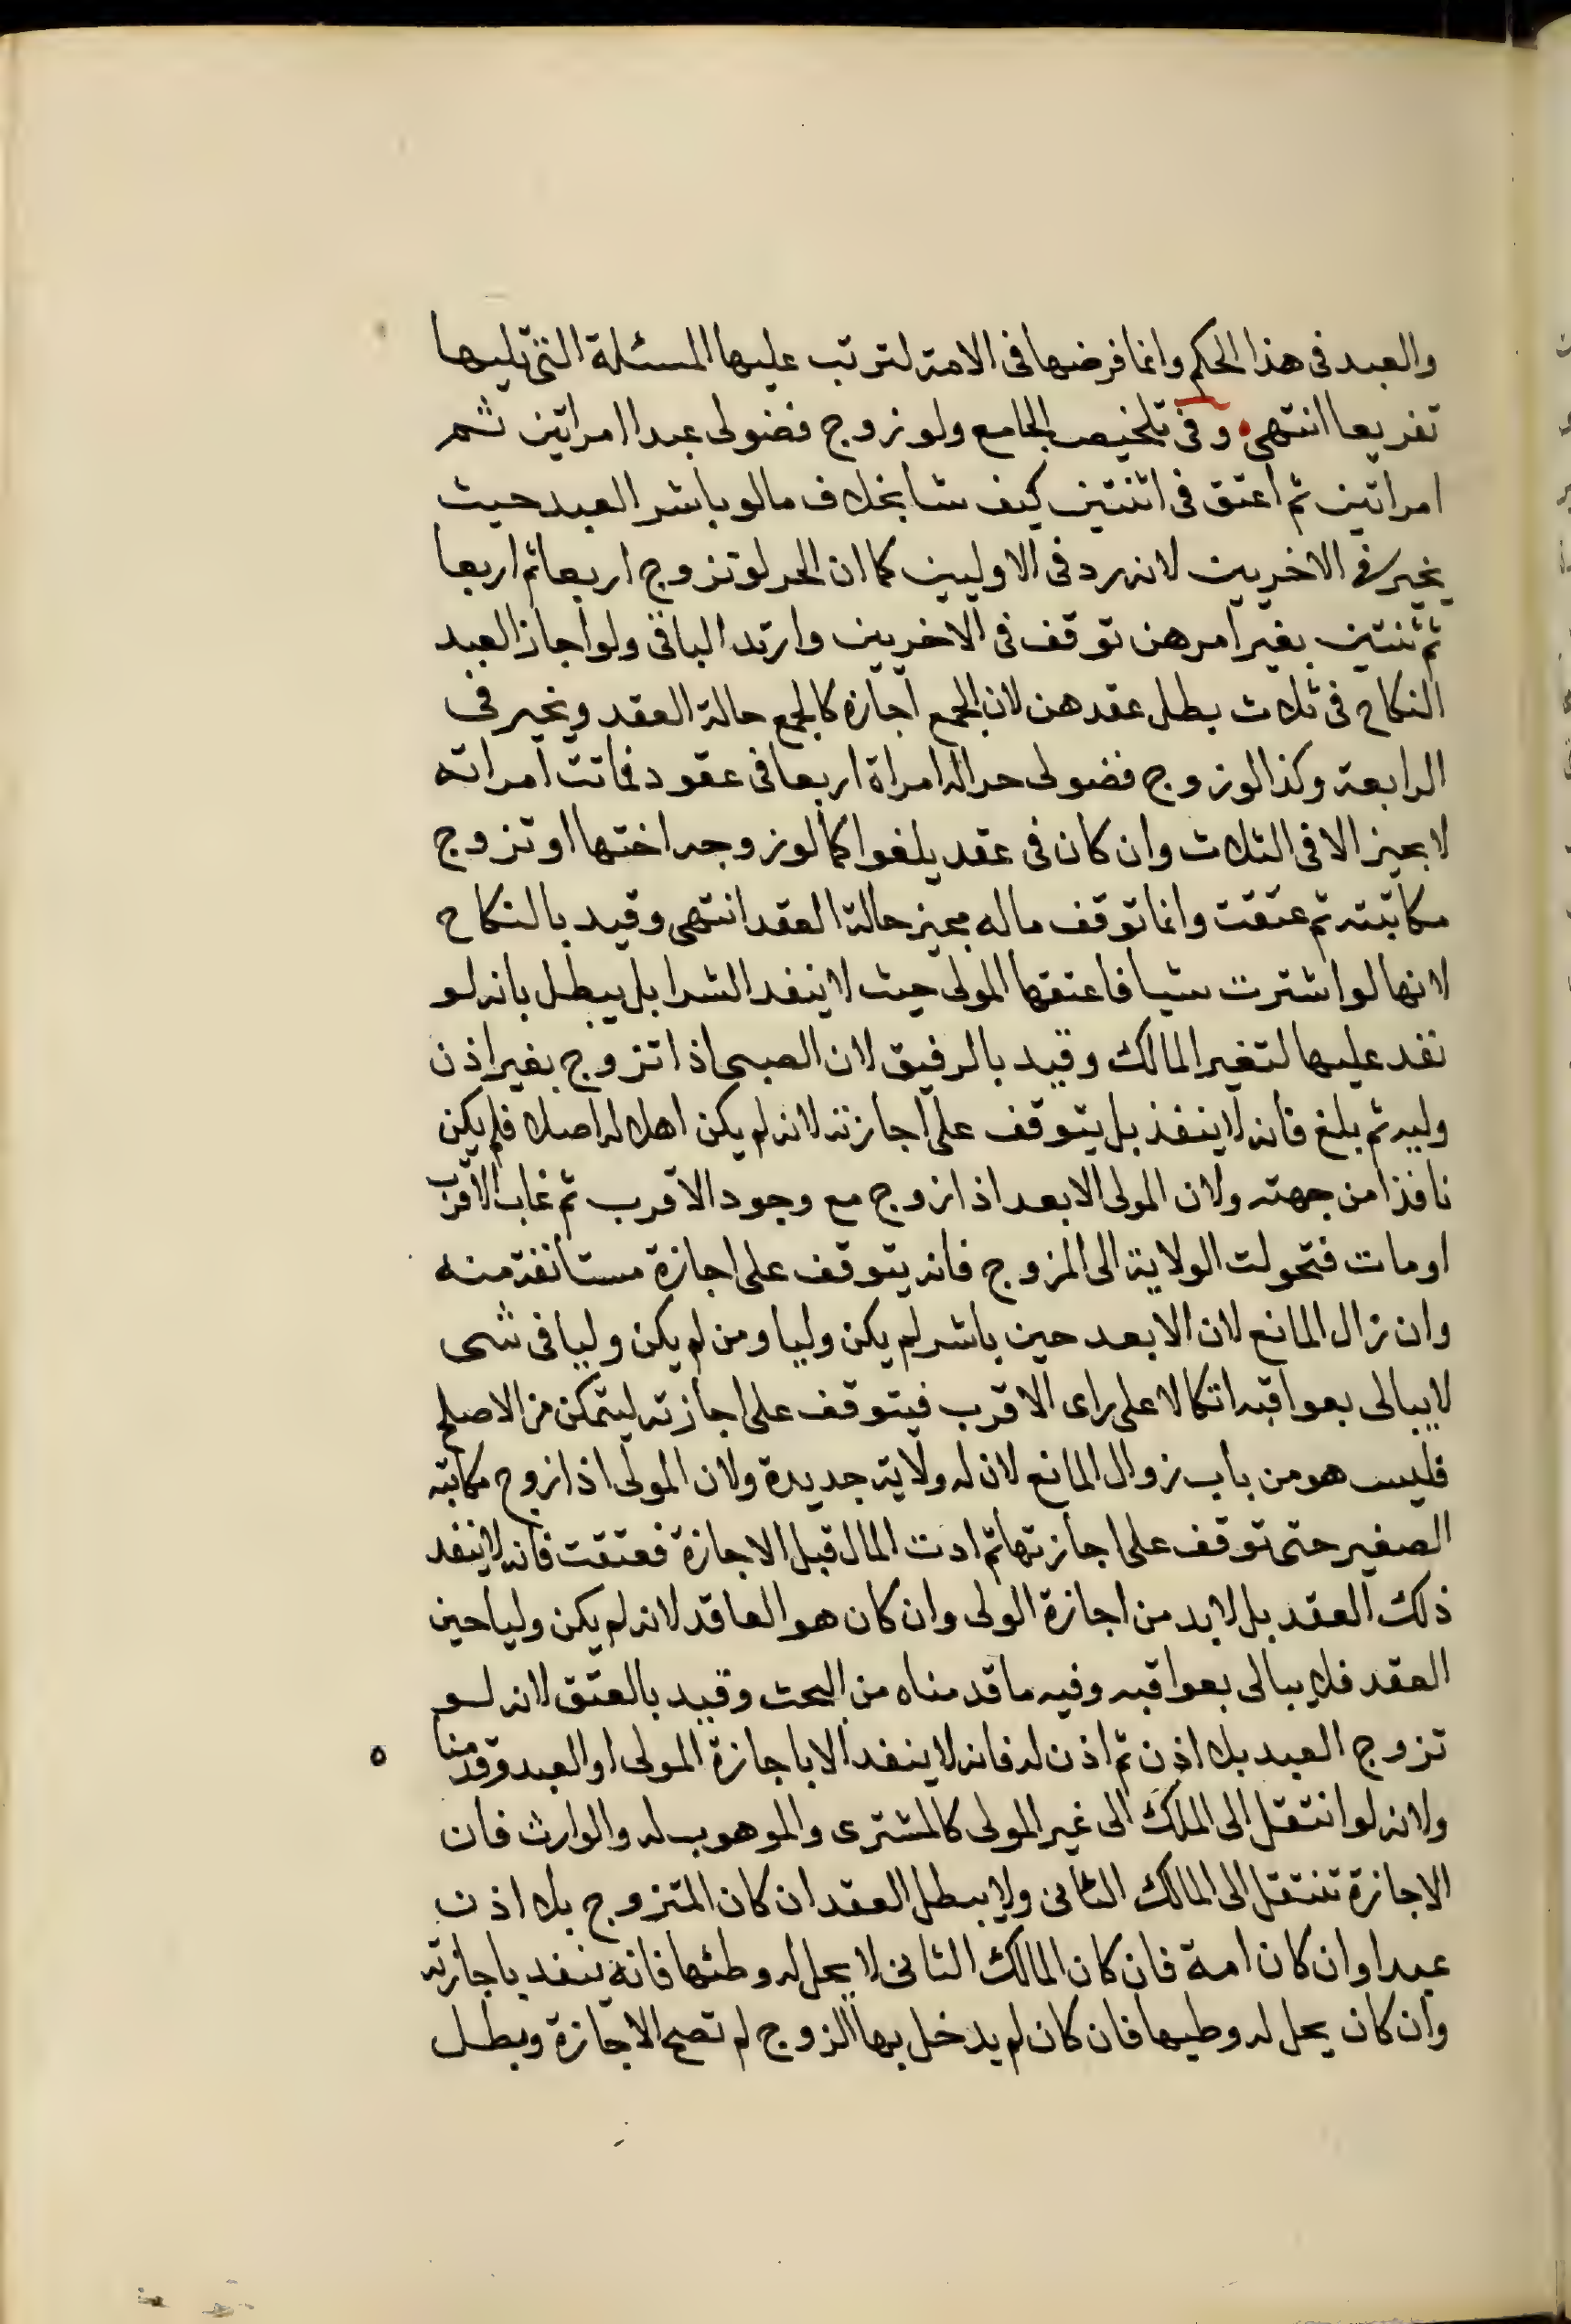 والعبد فى هذا الحكم وانما فرضها فى الامة لترتب عليها المسئلة التى تليها
تفريعا انتهى وفى تلخيص الجامع ولو زوج فضولى عبدا امراتين ثم
امراتين ثم اعتق فى اثنتين كيف شا بخلاف مالو باشر العبد حيث
يخير فى الاخريين لانه رد فى الاوليين كما ان الحر لو تزوج اربعا ثم اربعا
ثم ثنتين بغير امرهن توقف فى الاخريين وارتد الباقى ولو اجاز العبد
النكاح فى ثلاث بطل عقدهن لان الجمع اجازة كالجمع حالة العقد ويخير فى
الرابعة وكذا لو زوج فضولى حرا له امراة اربعا فى عقود فماتت امراته
لا يجيز الا فى الثلاث وان كان فى عقد يلغوا كما لو زوجه اختها او تزوج
مكاتبته ثم عتقت وانما توقف ماله مجيز حالة العقد انتهى وقيد بالنكاح
لانها لو اشترت شيا فاعتقها المولى حيث لا ينفد الشرا بل يبطل بانه لو
نفد عليها لتغير المالك وقيد بالرقيق لان الصبى اذا تزوج بغير اذن
وليه ثم بلغ فانه لا ينفذ بل يتوقف على اجازته لانه لم يكن اهلا له اصلا فلم يكن
نافذا من جهته ولان المولى الابعد اذا زوج مع وجود الاقرب ثم غاب الاقرب
او مات فتحولت الولاية الى المزوج فانه يتوقف على اجازة مستانفة منه
وان زال المانع لان الابعد حين باشر لم يكن وليا ومن لم يكن وليا فى شى
لا يبالى بعواقبه اتكالا على راى الاقرب فيتوقف على اجازته ليتمكن من الاصلح
فليس هو من باب زوال المانع لان له ولاية جديدة ولان المولى اذا زوج مكاتبته
الصغير حتى توقف على اجازتها ثم ادت المال قبل الاجازة فعتقت فانه لا ينفد
ذلك العقد بل لا بد من اجازة الولى وان كان هو العاقد لانه لم يكن وليا حين
العقد فلا يبالى بعواقبه وفيه ما قدمناه من البحث وقيد بالعتق لانه لو
تزوج العبد بلا اذن ثم اذن له فانه لا ينفد الا باجازة المولى او العبد وقدمنا ٥
ولانه لو انتقل الى الملك الى غير المولى كالمشترى والموهوب له والوارث فان
الاجازة تنتقل الى المالك الثانى ولا يبطل العقد ان كان المتزوج بلا اذن
عبدا وان كان امة فان كان المالك الثانى لا يحل له وطئها فانه ينفد باجازته
وان كان يحل له وطيها فان كان لم يدخل بها الزوج لم تصح الاجازة وبطل